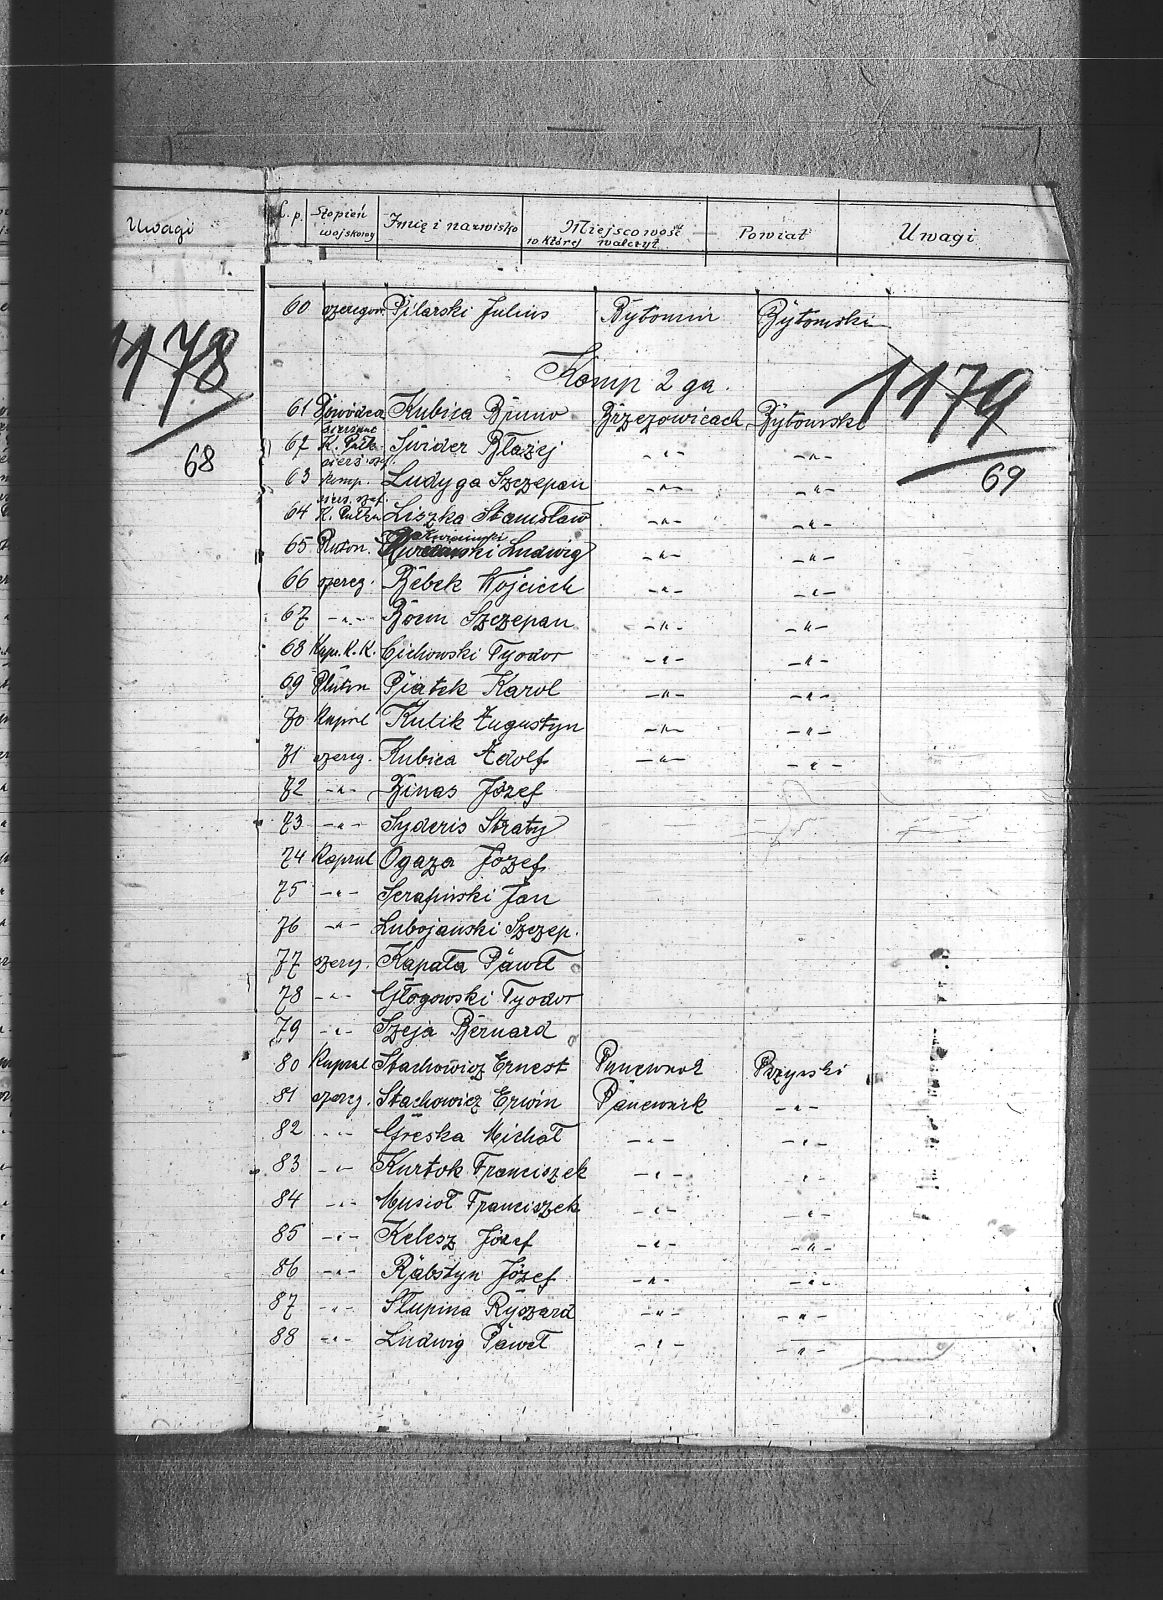 Uwagi
1178
68
L.p. Stopień wojskowy Imię i nazwisko Miejscowość w której walczył Powiat Uwagi
60 szeregow. Pilarski Julius Bytomiu Bytomski
Komp 2 ga.
1179
69
61 Dowódca Kubica Bruno Brzezowicach Bytomski
62 sierżant K. Świder Błażej -"- -"-
63 komp. Ludyga Szczepan -"- -"-
64 Liszka Stanisław -"- -"-
65 Pluton. Ludwig -"- -"-
66 szereg. Bebek Wojciech -"- -"-
67 -"- Böem Szczepan -"- -"-
68 Kapr. K. K. Cichowski Tyodor -"- -"-
69 Pluton Piatek Karol -"- -"-
70 Kapral Kulik Augustyn -"- -"-
71 szereg. Kubica Adolf -"- -"-
72 -"- Binas Józef
73 -"- Syderis Straty
74 Kapral Ogaza Józef
75 -"- Serafinski Jan
76 -"- Lubojanski Szczep.
77 szereg. Kapała Paweł
78 -"- Głogowski Tyodor
79 -"- Szeja Bernard
80 Kapral Stachowicz Ernest
81 szereg. Stachowicz Erwin Panewnik -"-
82 -"- Greska Michał -"- -"-
83 -"- Kurtok Franciszek -"- -"-
84 -"- Musioł Franciszek -"- -"-
85 -"- Kelesz Józef -"- -"-
86 -"- Rabstyn Józef -"- -"-
87 -"- Słupina Ryszard -"- -"-
88 -"- Ludwig Paweł -"- -"-